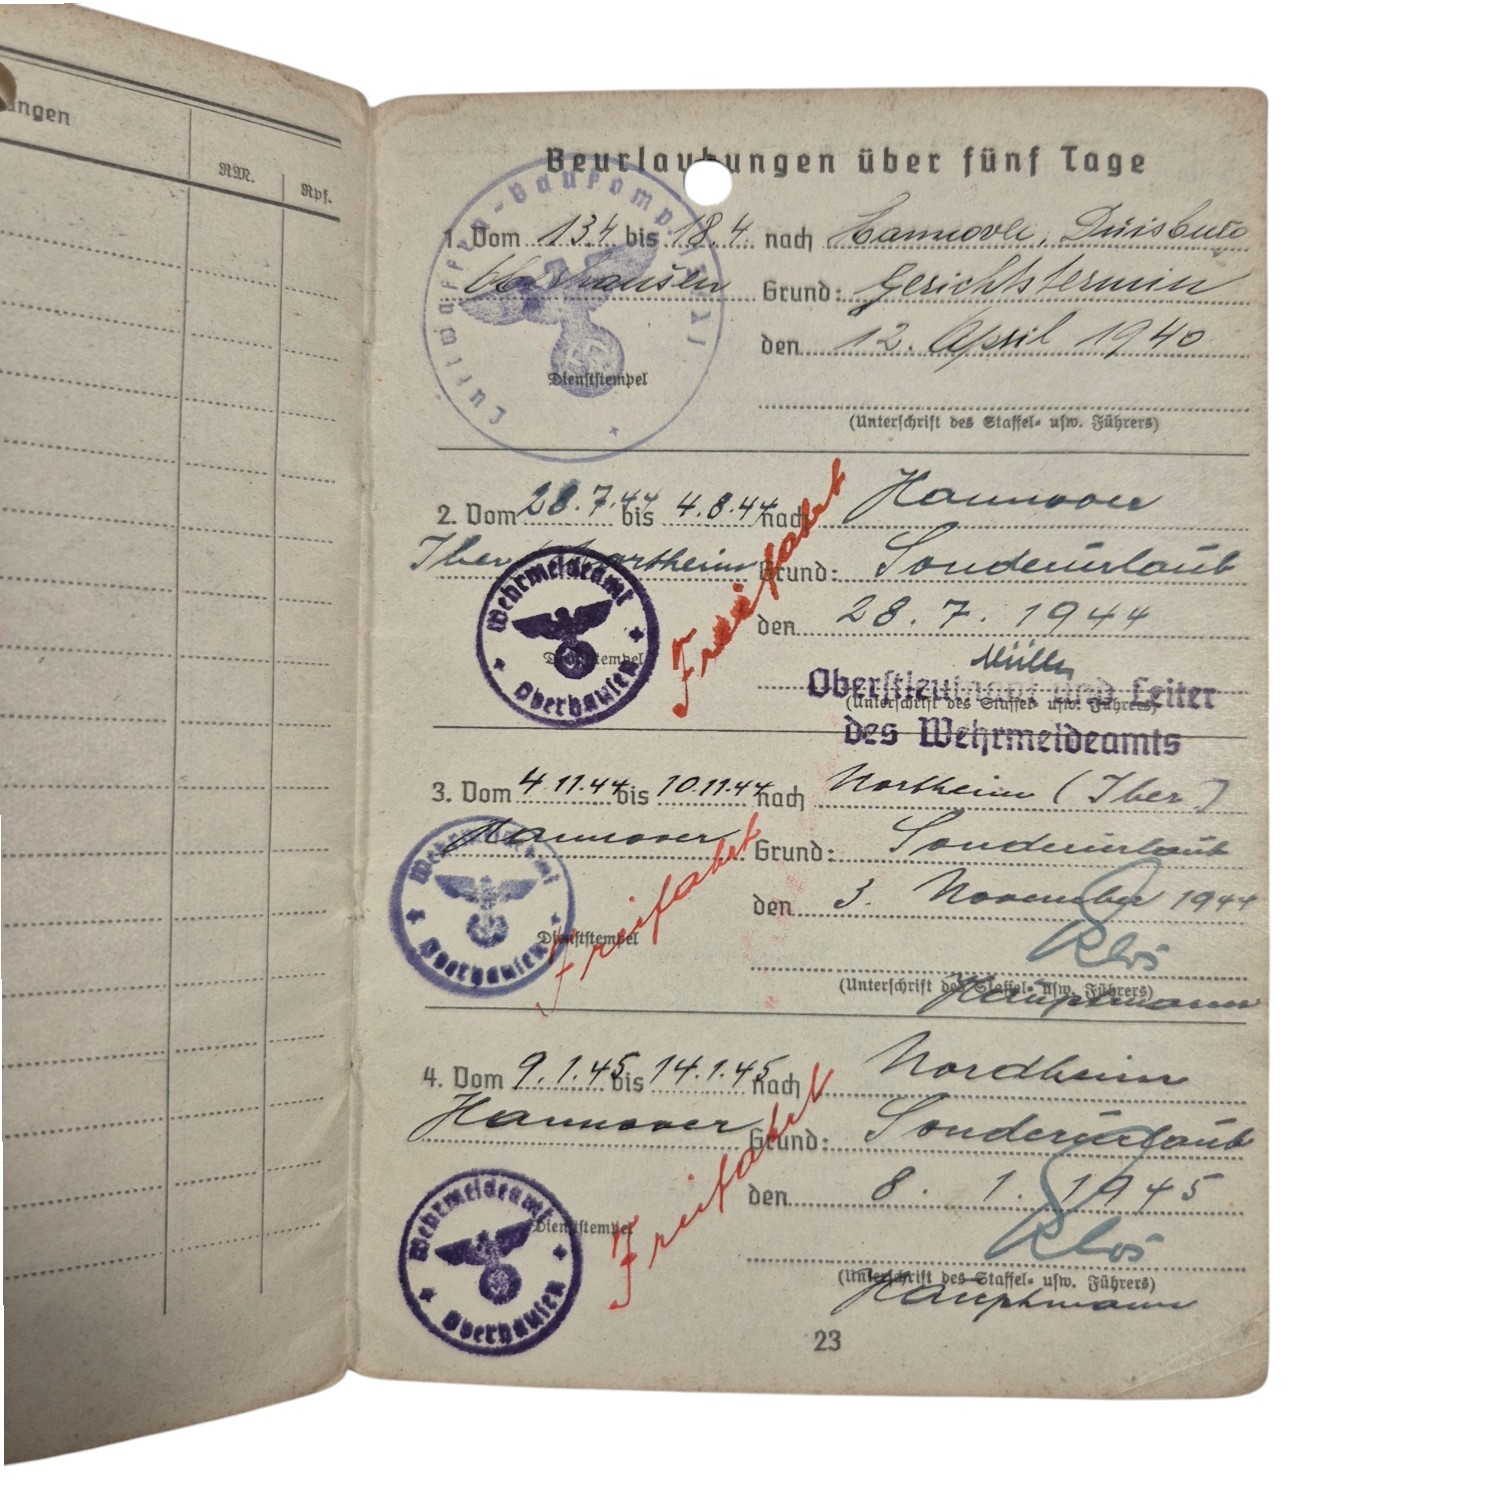 ungen
RM.
Rpf.
Beurlaubungen über fünf Tage
1. Vom 13.4 bis 18.4. nach Hannover, Duisburg
Oberhausen Grund: Gerichtstermin
den 12. April 1940
Luftwaffen-Baukomp.
Dienststempel
(Unterschrift des Staffel- usw. Führers)
2. Vom 28.7.44 bis 4.8.44 nach Hannover
Iber Northeim Grund: Sonderurlaub
Freifahrt
den 28.7.1944
Wehrmeldeamt
Oberhausen
Dienststempel
Müller
Oberstleutnant und Leiter
(Unterschrift des Staffel- usw. Führers)
des Wehrmeldeamts
3. Vom 4.11.44 bis 10.11.44 nach Northeim (Iber)
Hannover Grund: Sonderurlaub
Freifahrt
den 3. November 1944
Wehrmeldeamt
Oberhausen
Dienststempel
(Unterschrift des Staffel- usw. Führers)
Hauptmann
4. Vom 9.1.45 bis 14.1.45 nach Nordheim
Hannover Grund: Sonderurlaub
Freifahrt
den 8.1.1945
Wehrmeldeamt
Oberhausen
Dienststempel
(Unterschrift des Staffel- usw. Führers)
Hauptmann
23